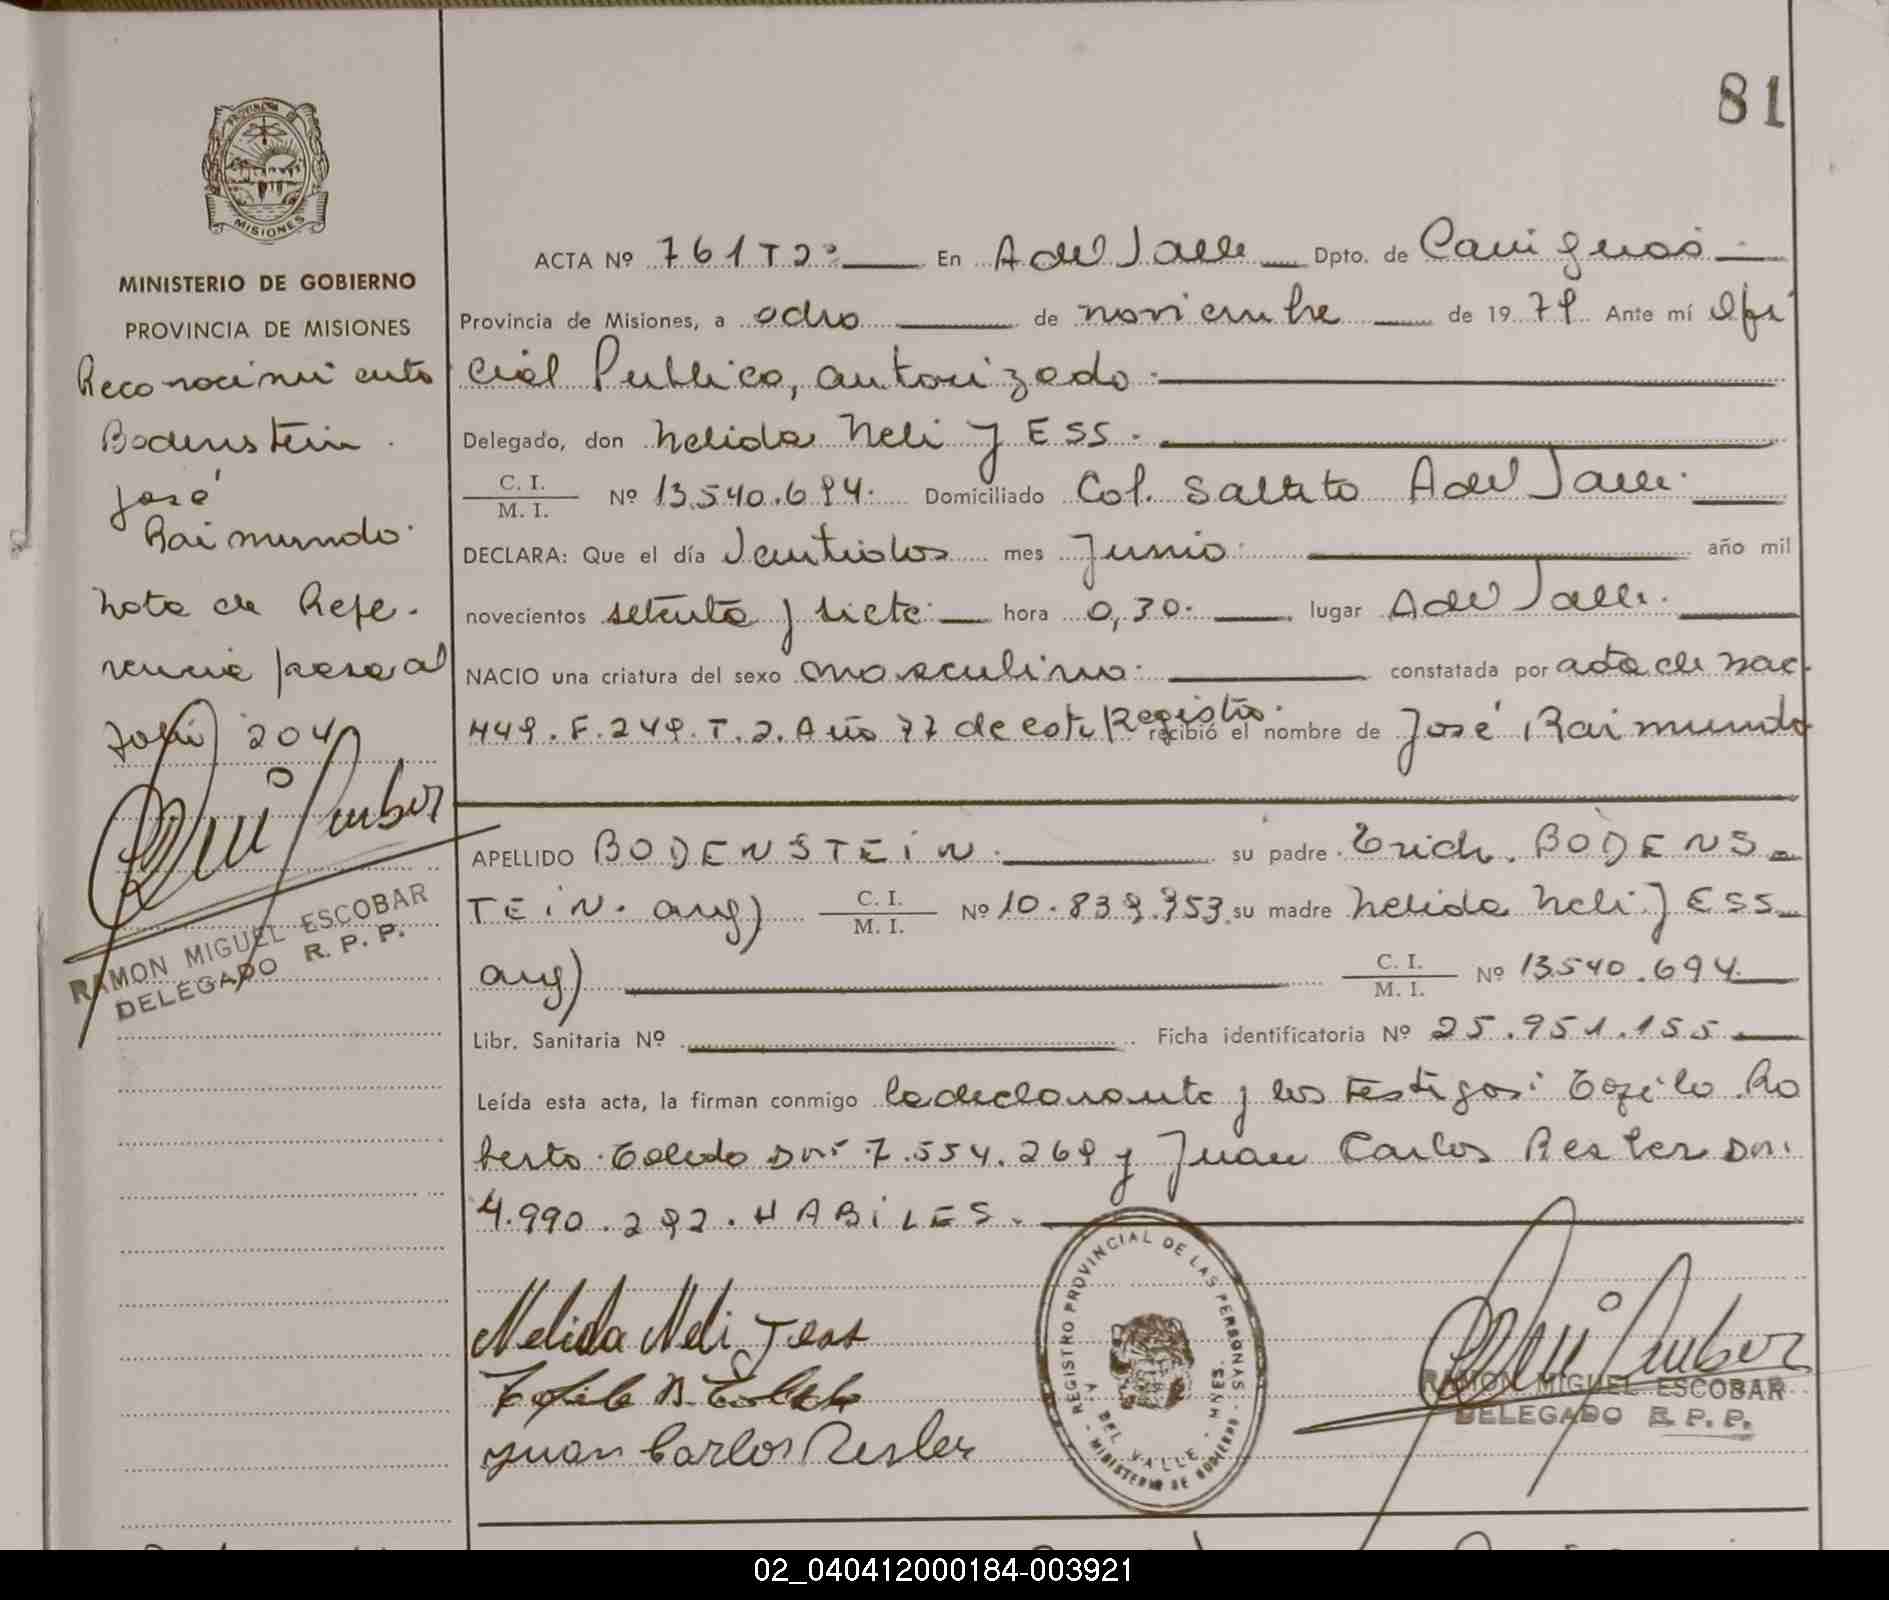 81
PROVINCIA DE
MISIONES
MINISTERIO DE GOBIERNO
PROVINCIA DE MISIONES
Reconocimiento
Bodenstein.
José
Raimundo.
Nota de Refe-
rencia pasa al
folio 204
RAMON MIGUEL ESCOBAR
DELEGADO R. P. P.
ACTA Nº 761 T 2º En A del Valle Dpto. de Cainguás
Provincia de Misiones, a ocho de noviembre de 1979. Ante mí Ofi
cial Publico, autorizado.
Delegado, don Nelida Neli JESS.
C. I. / M. I. Nº 13.540.694. Domiciliado Col. Saltito A del Valle.
DECLARA: Que el día Veintidos mes Junio. año mil
novecientos setenta y siete. hora 0,30. lugar A del Valle.
NACIO una criatura del sexo masculino. constatada por acta de nac.
449. F. 249. T. 2. Año 77 de este Registro. recibió el nombre de José Raimundo
APELLIDO BODENSTEIN. su padre Erich. BODENS-
TEIN. arg) C. I. / M. I. Nº 10.839.353. su madre Nelida Neli JESS
arg) C. I. / M. I. Nº 13.540.694.
Libr. Sanitaria Nº Ficha identificatoria Nº 25.951.155
Leída esta acta, la firman conmigo la declarante y los testigos: Ro
berto Toledo Dni 7.554.269 y Juan Carlos Resler Dni
4.990.292. HABILES.
Nelida Neli Jess
Juan Carlos Resler
REGISTRO PROVINCIAL DE LAS PERSONAS
A. DEL VALLE - MNES.
MINISTERIO DE GOBIERNO
RAMON MIGUEL ESCOBAR
DELEGADO R. P. P.
02_040412000184-003921